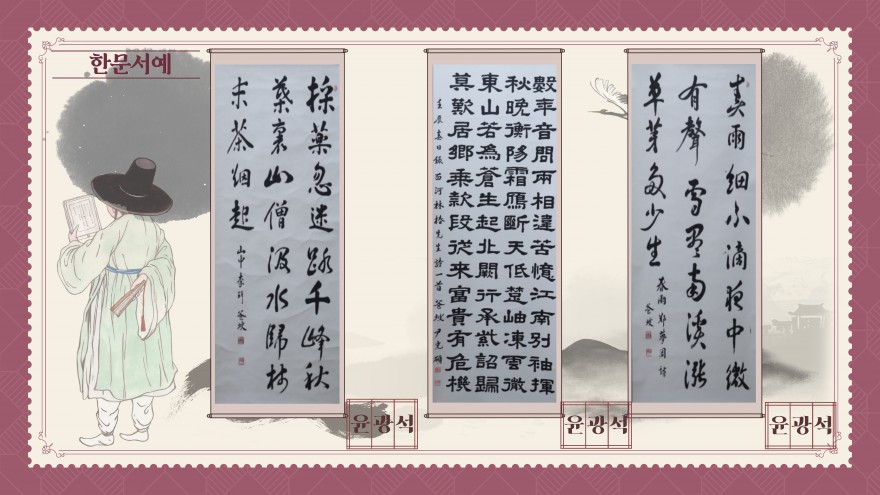 한문서예
採藥忽迷路千峰秋
葉裏山僧汲水歸林
末茶烟起
山中 李珥
數年音問兩相違苦憶江南別袖揮
秋晩衡陽霜鴈斷天低楚岫凍雲微
東山若為蒼生起北闕行承紫詔歸
莫歎居鄉乘款段從來富貴有危機
壬辰春日錄西河林椿先生詩一首 尹光碩
春雨細不滴夜中微
有聲雪盡南溪漲
草芽多少生
春雨 鄭夢周 詩
윤광석
윤광석
윤광석